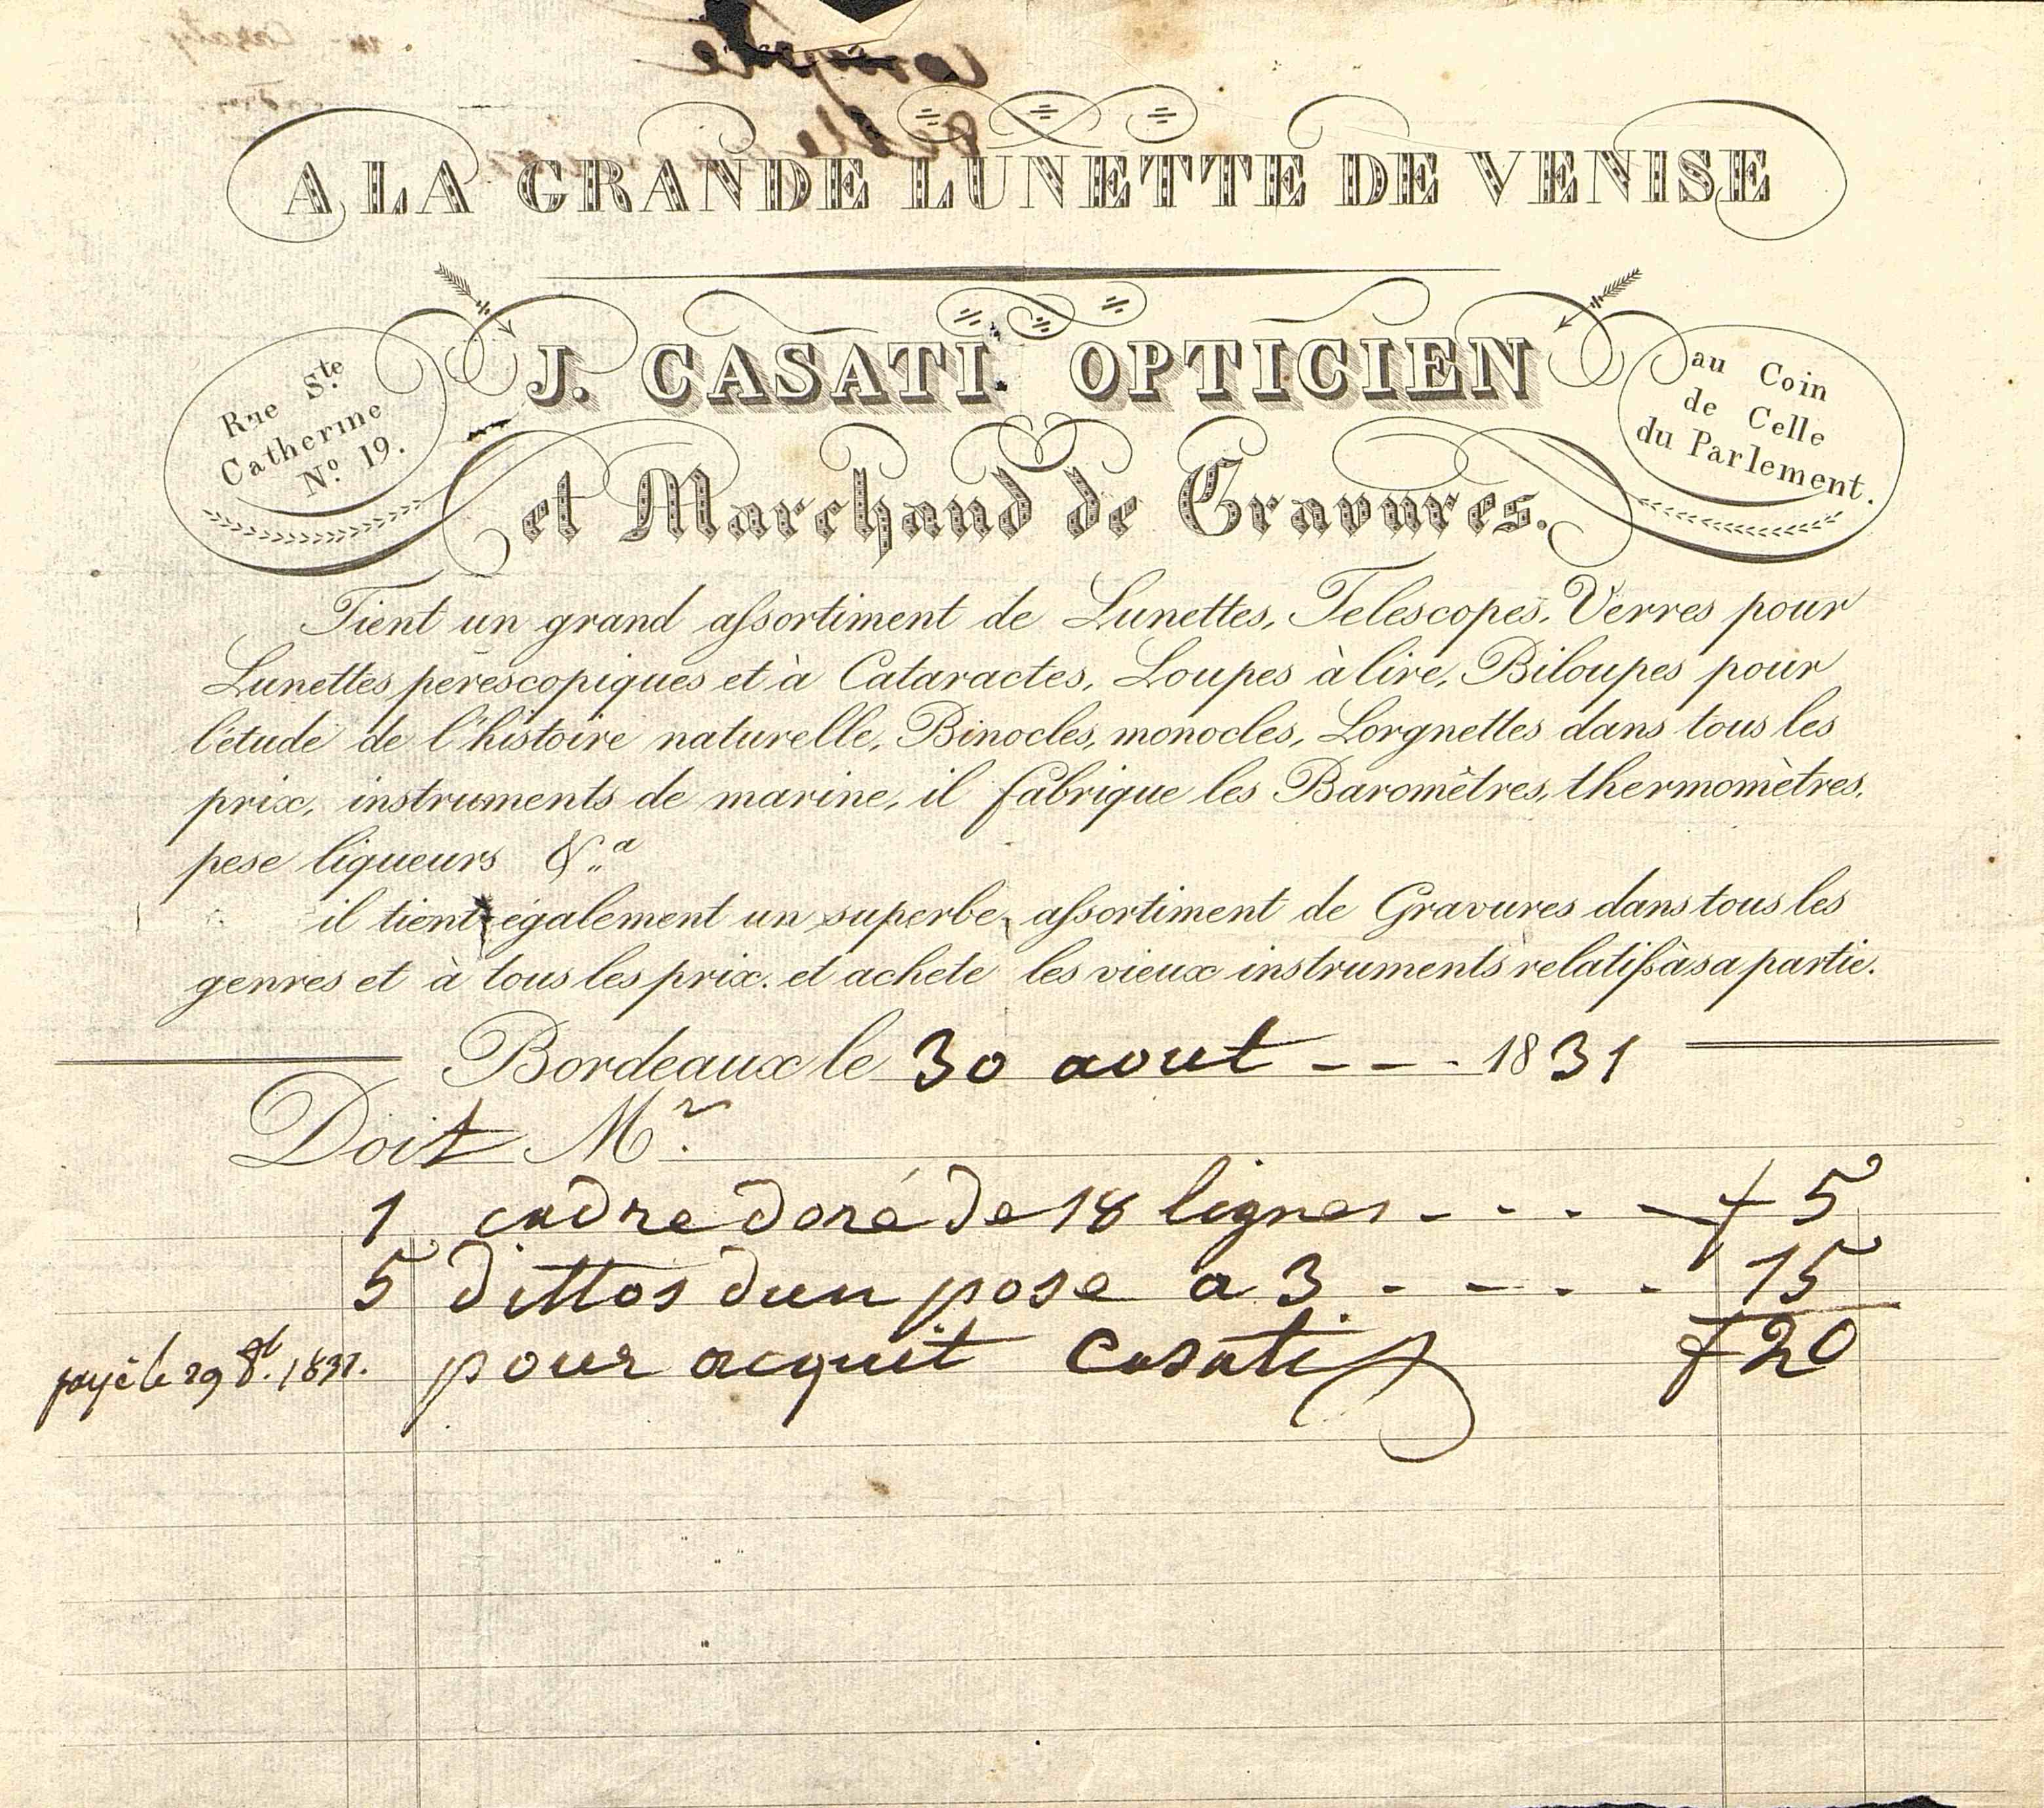 A LA GRANDE LUNETTE DE VENISE
Rue Ste
Catherine
No 19.
J. CASATI. OPTICIEN
au Coin
de Celle
du Parlement.
et Marchand de Gravures.
Tient un grand assortiment de Lunettes, Telescopes, Verres pour
Lunettes perescopiques et à Cataractes, Loupes à lire, Biloupes pour
l'étude de l'histoire naturelle, Binocles, monocles, Lorgnettes dans tous les
prix, instruments de marine, il fabrique les Baromètres, thermomètres,
pese liqueurs &.a
il tient également un superbe assortiment de Gravures dans tous les
genres et à tous les prix. et achete les vieux instruments relatifs à sa partie.
Bordeaux le 30 aout --- 1831
Doit Mr.
1 cadre doré de 18 lignes - - - - f 5
5 dittos dun pose a 3 - - - - 15
payé le 29 8b. 1831. pour acquit Casati f 20